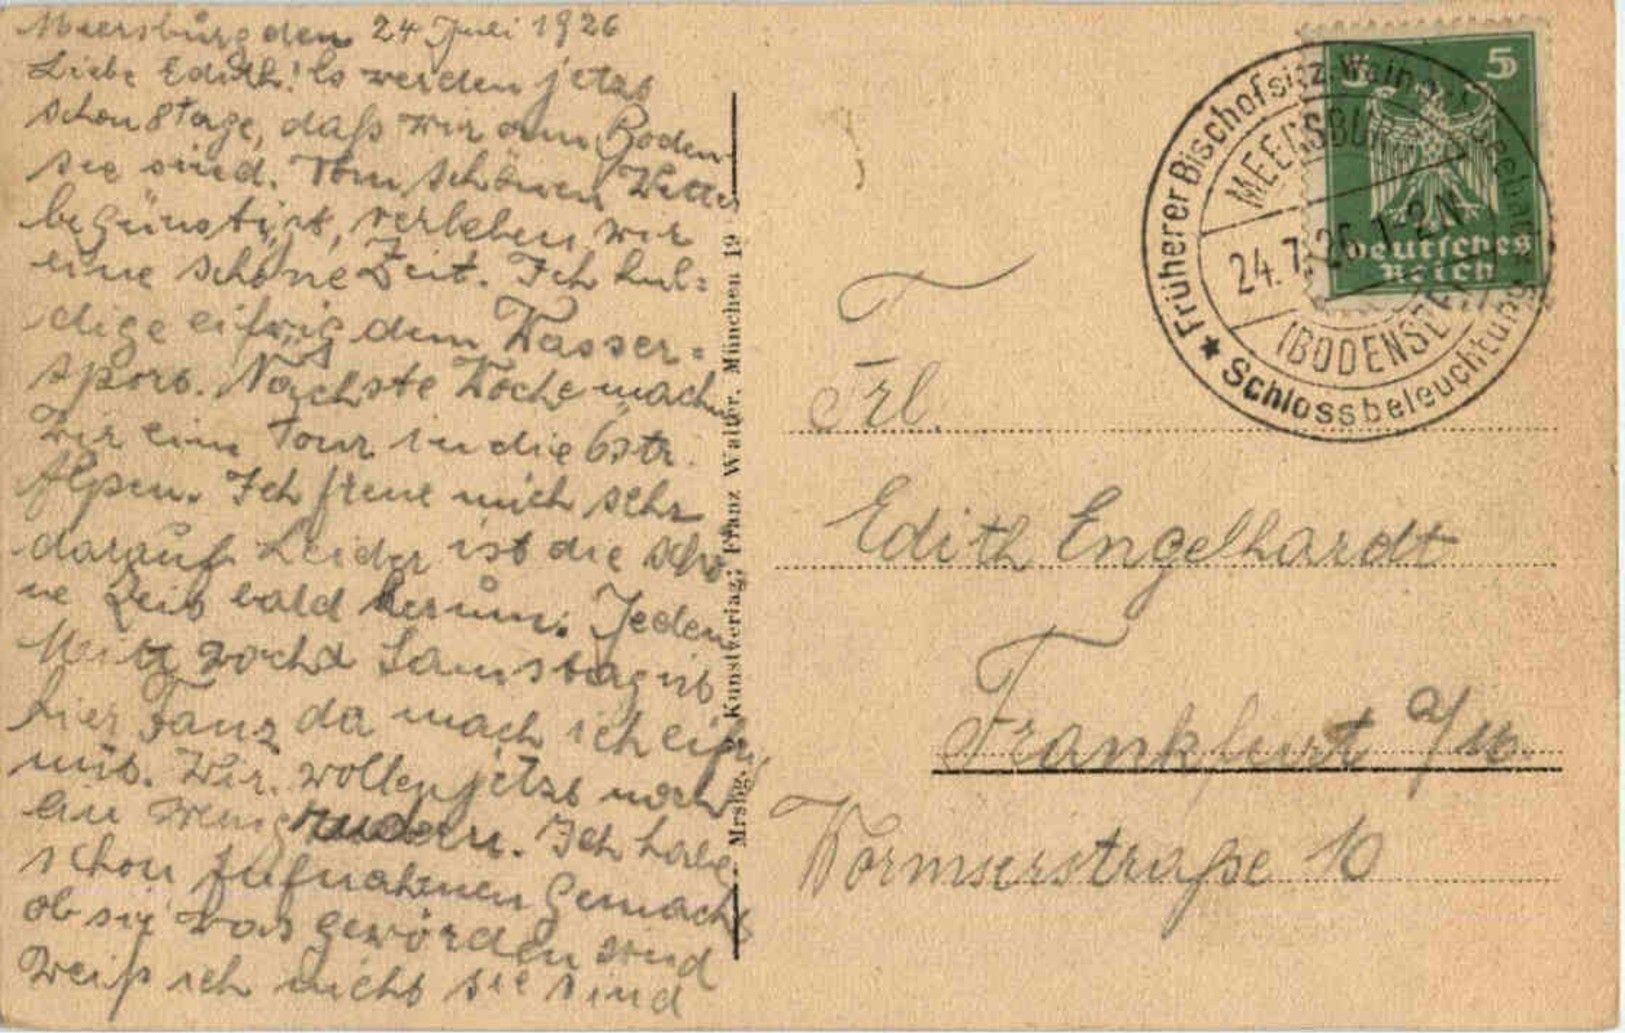 Meersburg den 24 Juli 1926
Liebe Edith! Es werden jetzt
schon 8 Tage, daß wir am Boden-
see sind. Vom schönen Wetter
begünstigt, verleben wir
eine schöne Zeit. Ich hul=
dige eifrig dem Wasser=
sport. Nächste Woche machen
wir eine Tour in die östr.
Alpen. Ich freue mich sehr
darauf Leider ist die schö-
ne Zeit bald herum. Jeden
Mittwoch Samstag ist
hier Tanz da mach ich eifrig
mit. Wir wollen jetzt noch
ein wenig rudern. Ich habe
schon Aufnahmen gemacht
ob sie was geworden sind
weiß ich nicht sie sind
Mrsbg. Kunstverlag: Franz Walter, München 19
Früherer Bischofsitz, Wein
Schlossbeleuchtung
MEERSBURG
24.7.26.1-2N
(BODENSEE)
5 5
Deutsches
Reich
Frl.
Edith Engelhardt
Frankfurt a/M.
Wormserstraße 10